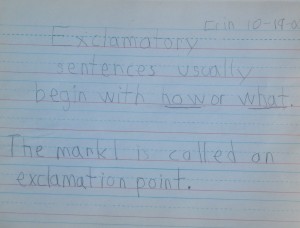 Erin 10-19-0
Exclamatory
sentences usually
begin with how or what.
The mark ! is called an
exclamation point.